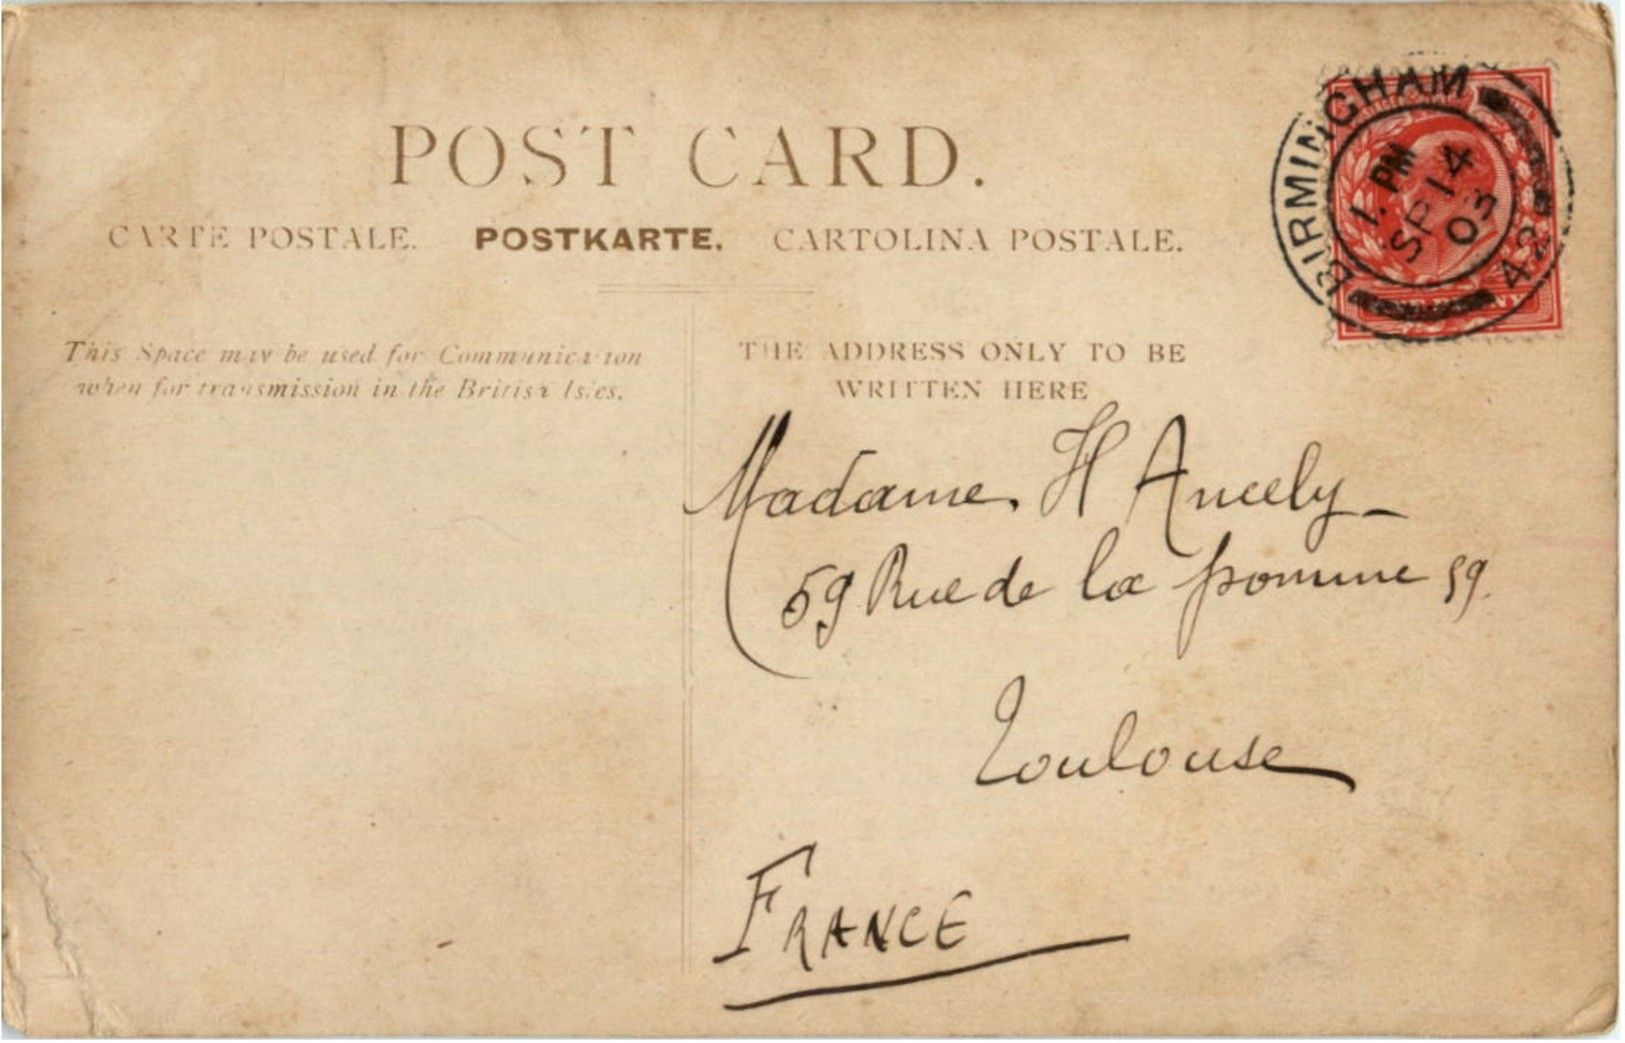 POST CARD.
CARTE POSTALE. POSTKARTE. CARTOLINA POSTALE.
This Space may be used for Communication
when for transmission in the British Isles.
THE ADDRESS ONLY TO BE
WRITTEN HERE
BIRMINGHAM
1. PM
SP 14
03
42
Madame. H Ancely
59 Rue de la pomme 59.
Toulouse
FRANCE